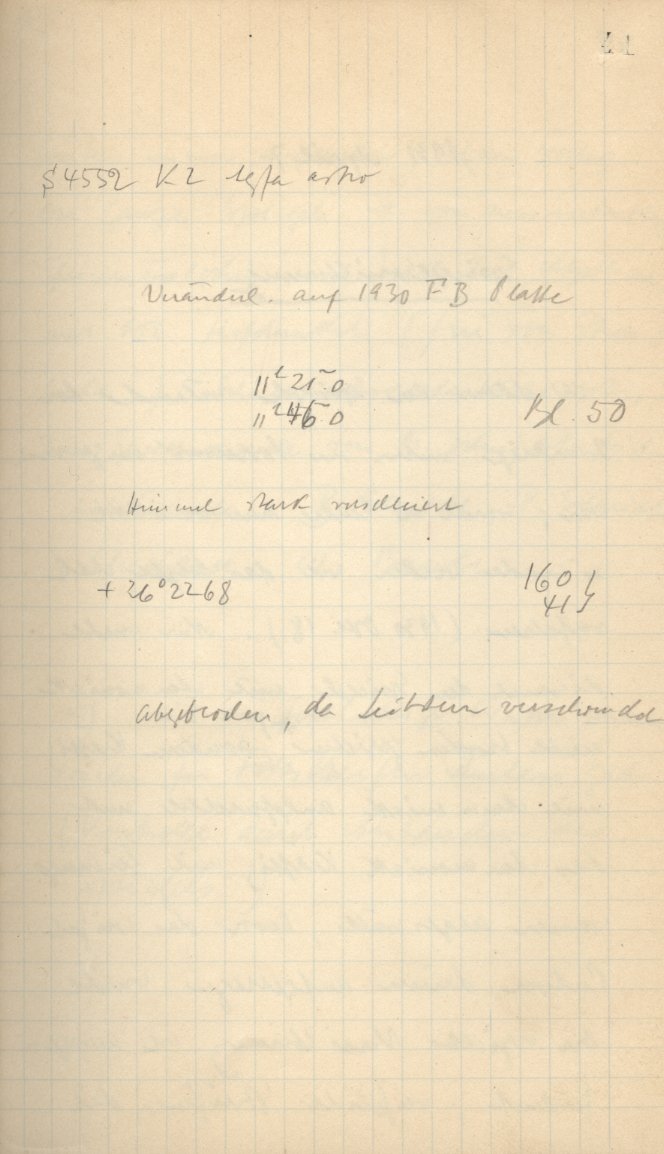 41
S 4552 K2 Agfa astro
Veränderl. auf 1930 FB Platte
11ʰ 21ᵐ.0
11ʰ 46.0 Bl. 50
Himmel stark verschleiert
+26°2268 160
41
abgebrochen, da Leitstern verschwindet